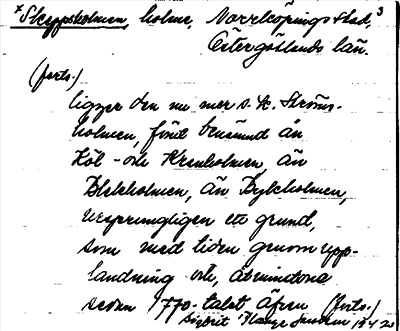 * Skeppsholmen, holme, Norrköpings stad, 3
Östergötlands län.
(forts.)
ligger den nu mer s. k. Ströms-
holmen, förut benämnd än
Kol- och Krenholmen, än
Blekholmen, än Bykholmen,
ursprungligen ett grund,
som med tiden genom upp-
landning och, åtminstone
sedan 1770-talet, äfven (forts.)
Sigurd